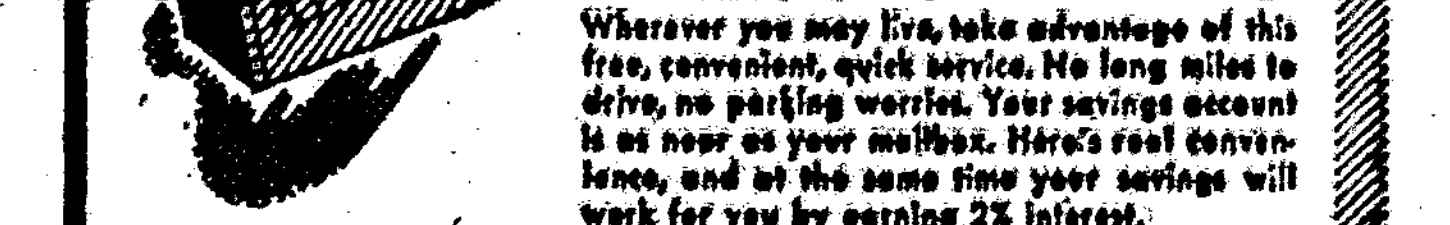 Wherever you may live, take advantage of this
free, convenient, quick service. No long miles to
drive, no parking worries. Your savings account
is as near as your mailbox. Here's real conven-
ience, and at the same time your savings will
work for you by earning 2% interest.